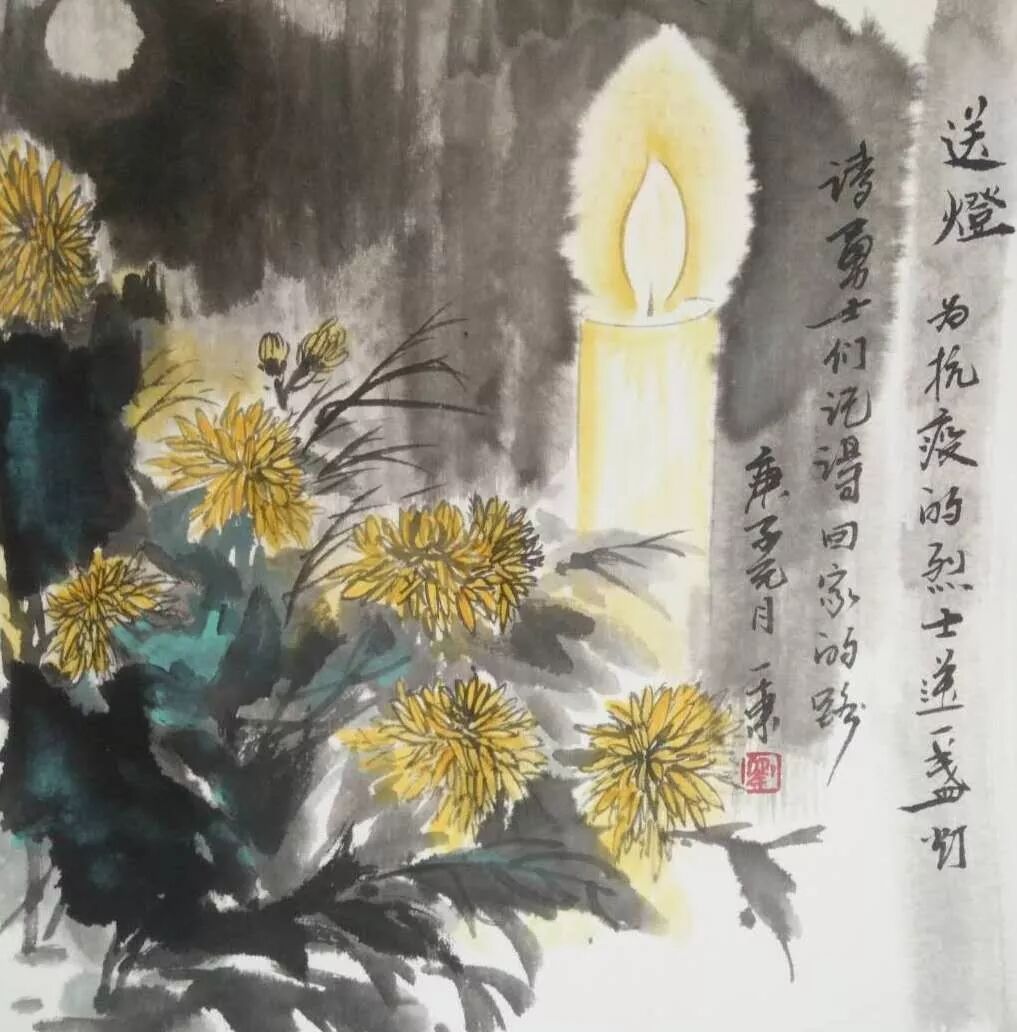 送燈 为抗疫的烈士送一盏灯
请勇士们记得回家的路
庚子元月 一秉
劉